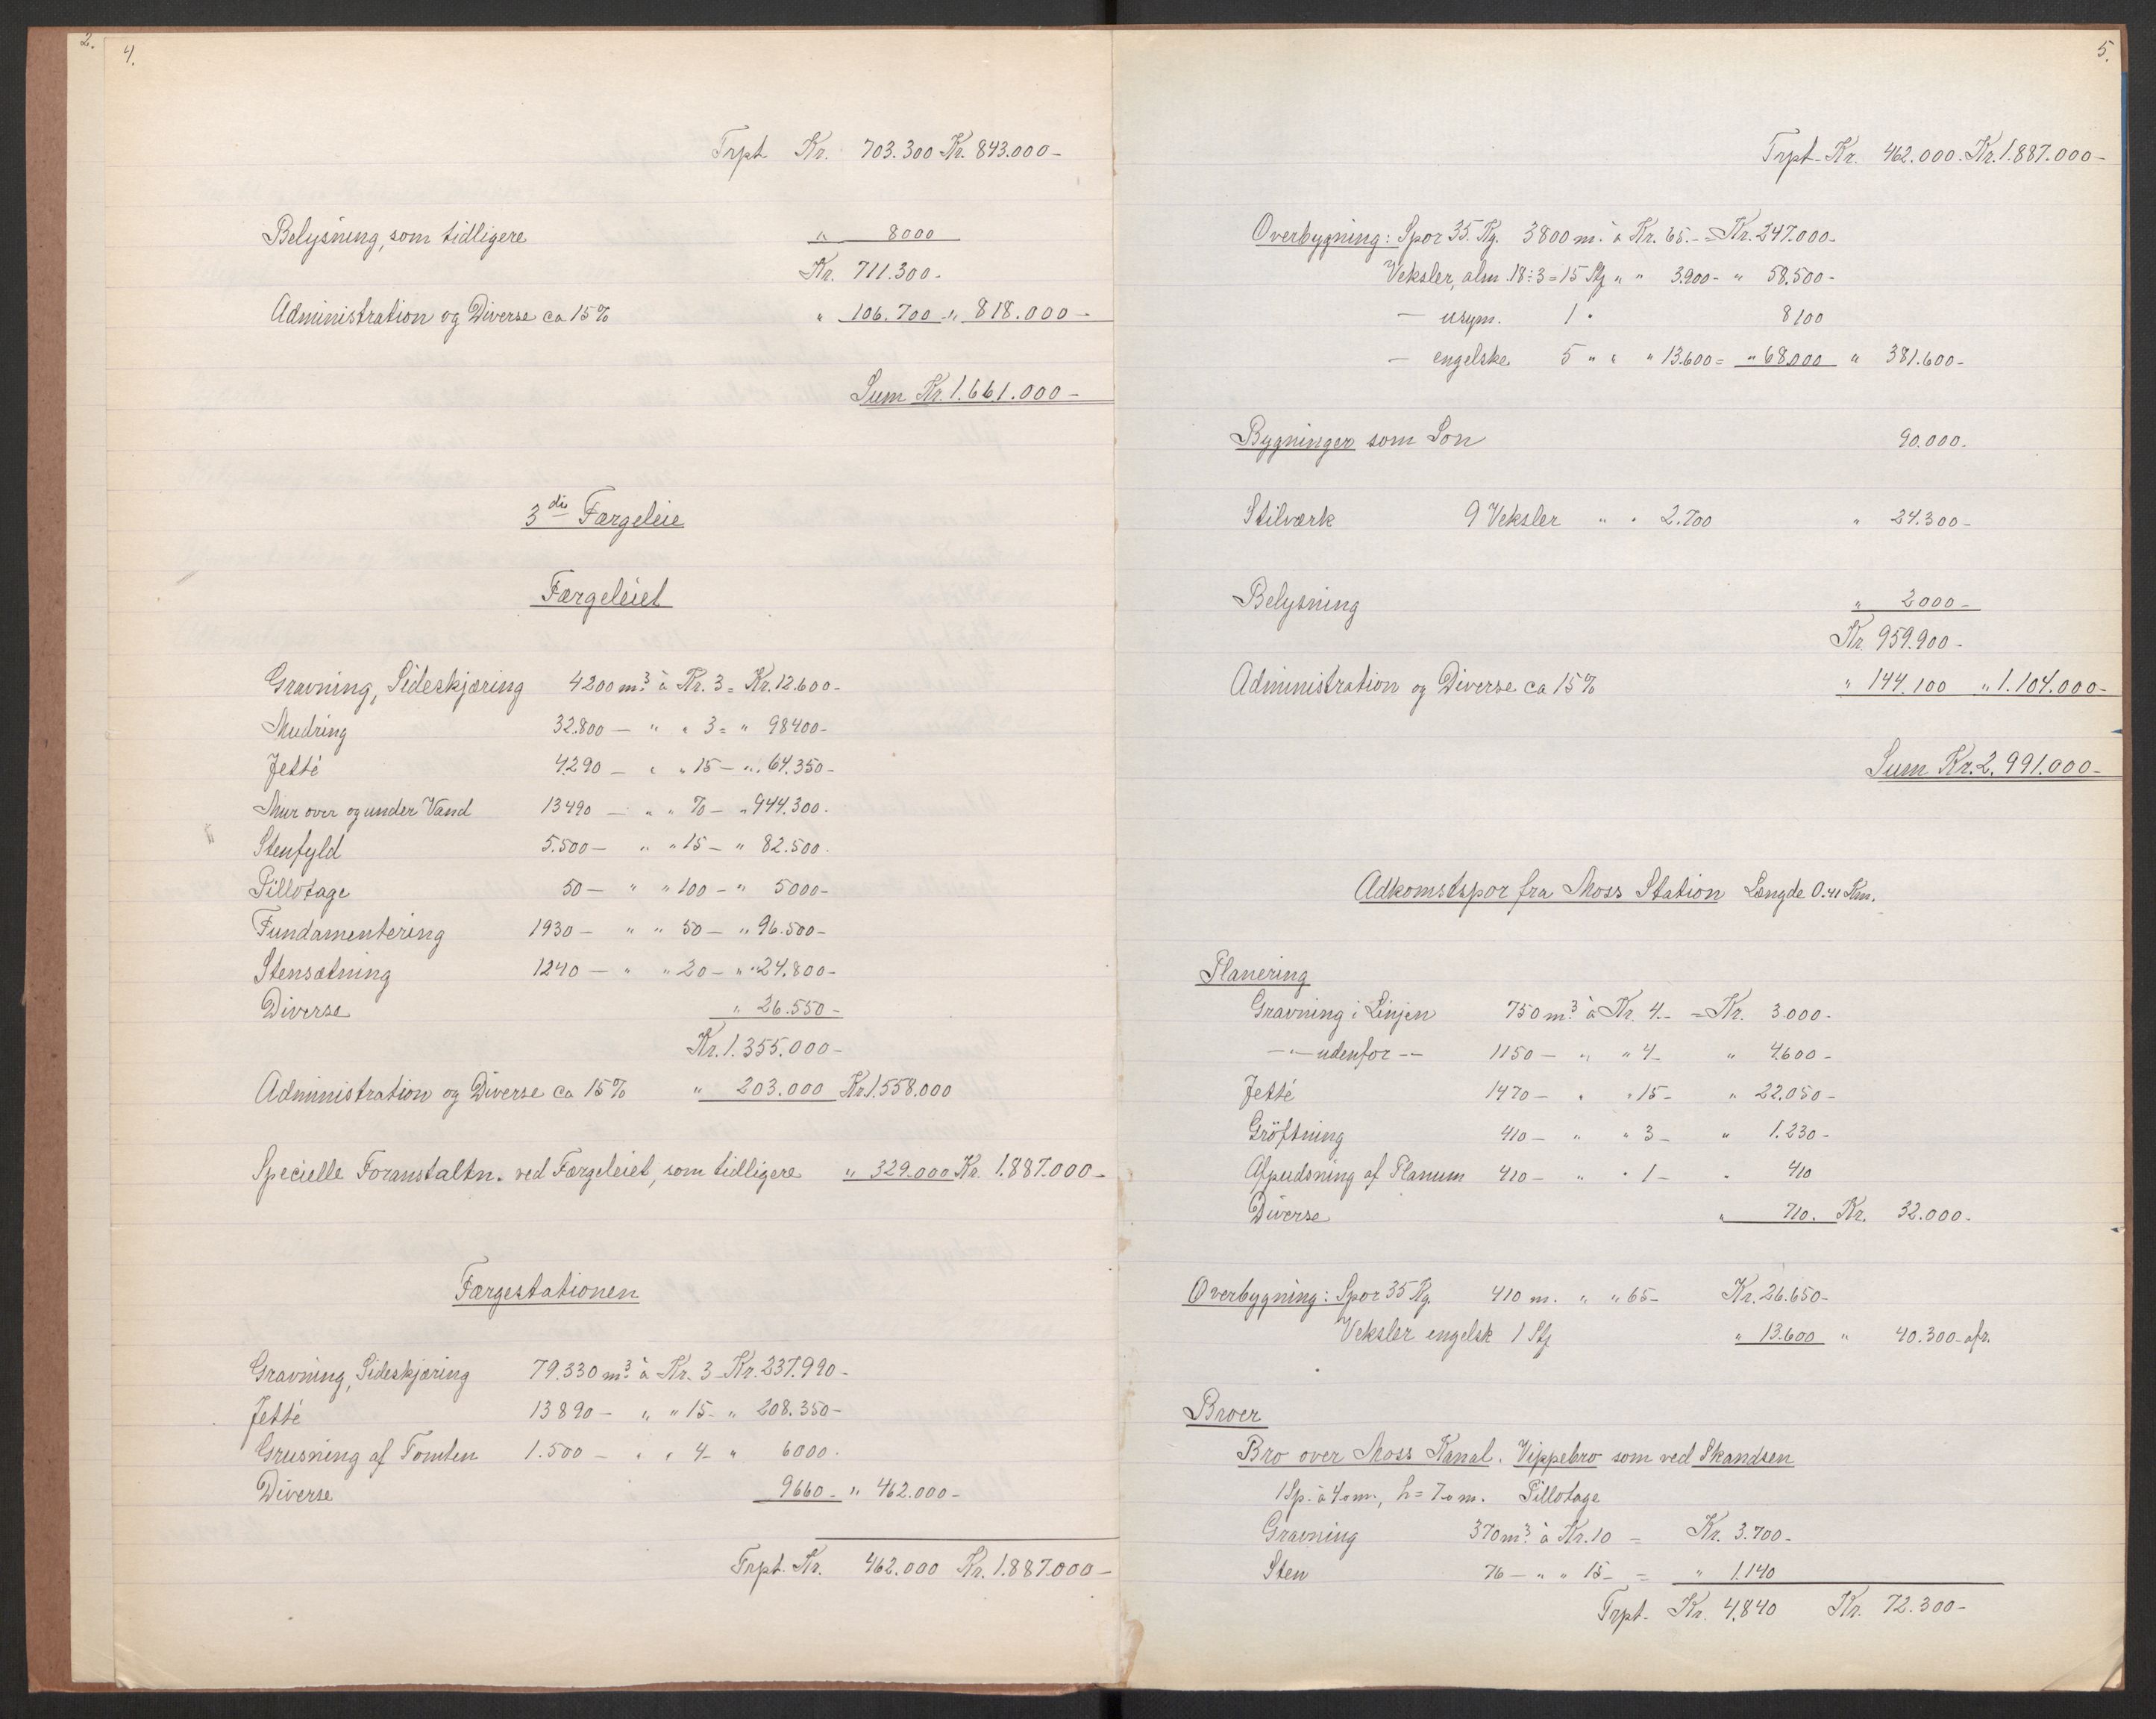 2.
4.
Trpt Kr. 703.300 Kr. 843.000 -
Belysning, som tidligere " 8000
Kr. 711.300 -
Administration og Diverse ca 15% " 106.700 - " 818.000 -
Sum Kr. 1.661.000 -
3die Færgeleie
Færgeleiet
Gravning, Sideskjæring 4200 m.³ à Kr. 3 = Kr. 12.600 -
Mudring 32.800 — " " 3 = " 98400 -
Jetté 4290 — " " 15 — " 64.350 -
Mur over og under Vand 13490 — " " 70 — " 944.300 -
Stenfyld 5.500 — " " 15 — " 82.500 -
Pillotage 50 — " " 100 — " 5000 -
Fundamentering 1930 — " " 50 — " 96.500 -
Stensætning 1240 — " " 20 — " 24.800 -
Diverse " 26.550 -
Kr. 1.355.000 -
Administration og Diverse ca 15% " 203.000 Kr. 1.558.000
Specielle Foranstaltn. ved Færgeleiet, som tidligere " 329.000 Kr. 1.887.000 -
Færgestationen
Gravning, Sideskjæring 79.330 m.³ à Kr. 3 - Kr. 237.990 -
Jetté 13890 — " " 15 - " 208.350 -
Grusning af Tomten 1.500 — " " 4 - " 6000 -
Diverse 9660 - " 462.000 -
Trpt. Kr. 462.000 Kr. 1.887.000 -
5.
Trpt - Kr. 462.000 - Kr. 1.887.000 -
Overbygning: Spor 35. Kg. 3800 m. à Kr. 65. - = Kr. 247.000 -
Veksler, alm. 18÷3=15 Stj " " 3.900 - " 58.500 -
— usym. 1 " 8100
— engelske 5 " " " 13.600 = " 68.000 " 381.600 -
Bygninger som Son 90.000 -
Stilværk 9 Veksler " " 2.700 " 24.300 -
Belysning " 2000 -
Kr 959.900 -
Administration og Diverse ca 15% " 144.100 " 1.104.000 -
Sum Kr. 2.991.000 -
Adkomstspor fra Moss Station Længde 0.41 Km.
Planering
Gravning i Linjen 750 m.³ à Kr. 4. - = Kr. 3.000 -
— " — udenfor — 1150 — " " 4 - " 4.600 -
Jetté 1470 — " " 15 - " 22.050 -
Gröftning 410 — " " 3 - " 1.230 -
Afpudsning af Planum 410 — " " 1 - " 410
Diverse " 710. Kr. 32.000 -
Overbygning: Spor 35 Kg. 410 m. " " 65 - Kr. 26.650 -
Veksler engelsk 1 Stj " 13.600 " 40.300 - afr.
Broer
Bro over Moss Kanal. Vippebro som ved Skandsen
1 Sp. à 4.0 m., h = 7.0 m. Pillotage
Gravning 370 m.³ à Kr. 10 = Kr. 3.700 -
Sten 76 — " " 15 - = " 1.140
Trpt - Kr. 4.840 Kr. 72.300 -